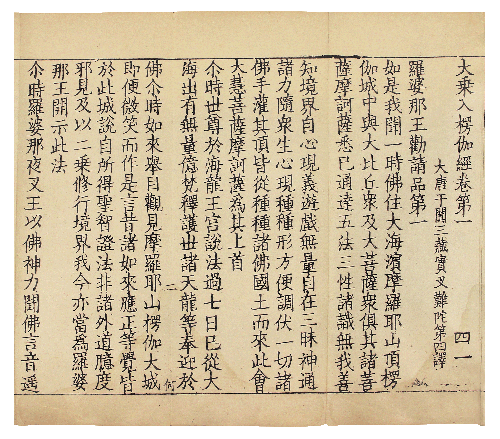 大乘入楞伽經卷第一
四一
大唐于闐三藏實叉難陀第四譯
羅婆那王勸請品第一
如是我聞一時佛住大海濱摩羅耶山頂楞
伽城中與大比丘衆及大菩薩衆俱其諸菩
薩摩訶薩悉已通達五法三性諸識無我善
知境界自心現義遊戲無量自在三昧神通
諸力隨衆生心現種種形方便調伏一切諸
佛手灌其頂皆從種種諸佛國土而來此會
大慧菩薩摩訶薩爲其上首
尒時世尊於海龍王宮說法過七日已從大
海出有無量億梵釋護世諸天龍等奉迎於
佛尒時如來舉目觀見摩羅耶山楞伽大城
即便微笑而作是言昔諸如來應正等覺皆
於此城說自所得聖智證法非諸外道臆度
邪見及以二乘修行境界我今亦當爲羅婆
那王開示此法
尒時羅婆那夜叉王以佛神力聞佛言音遥
二
何